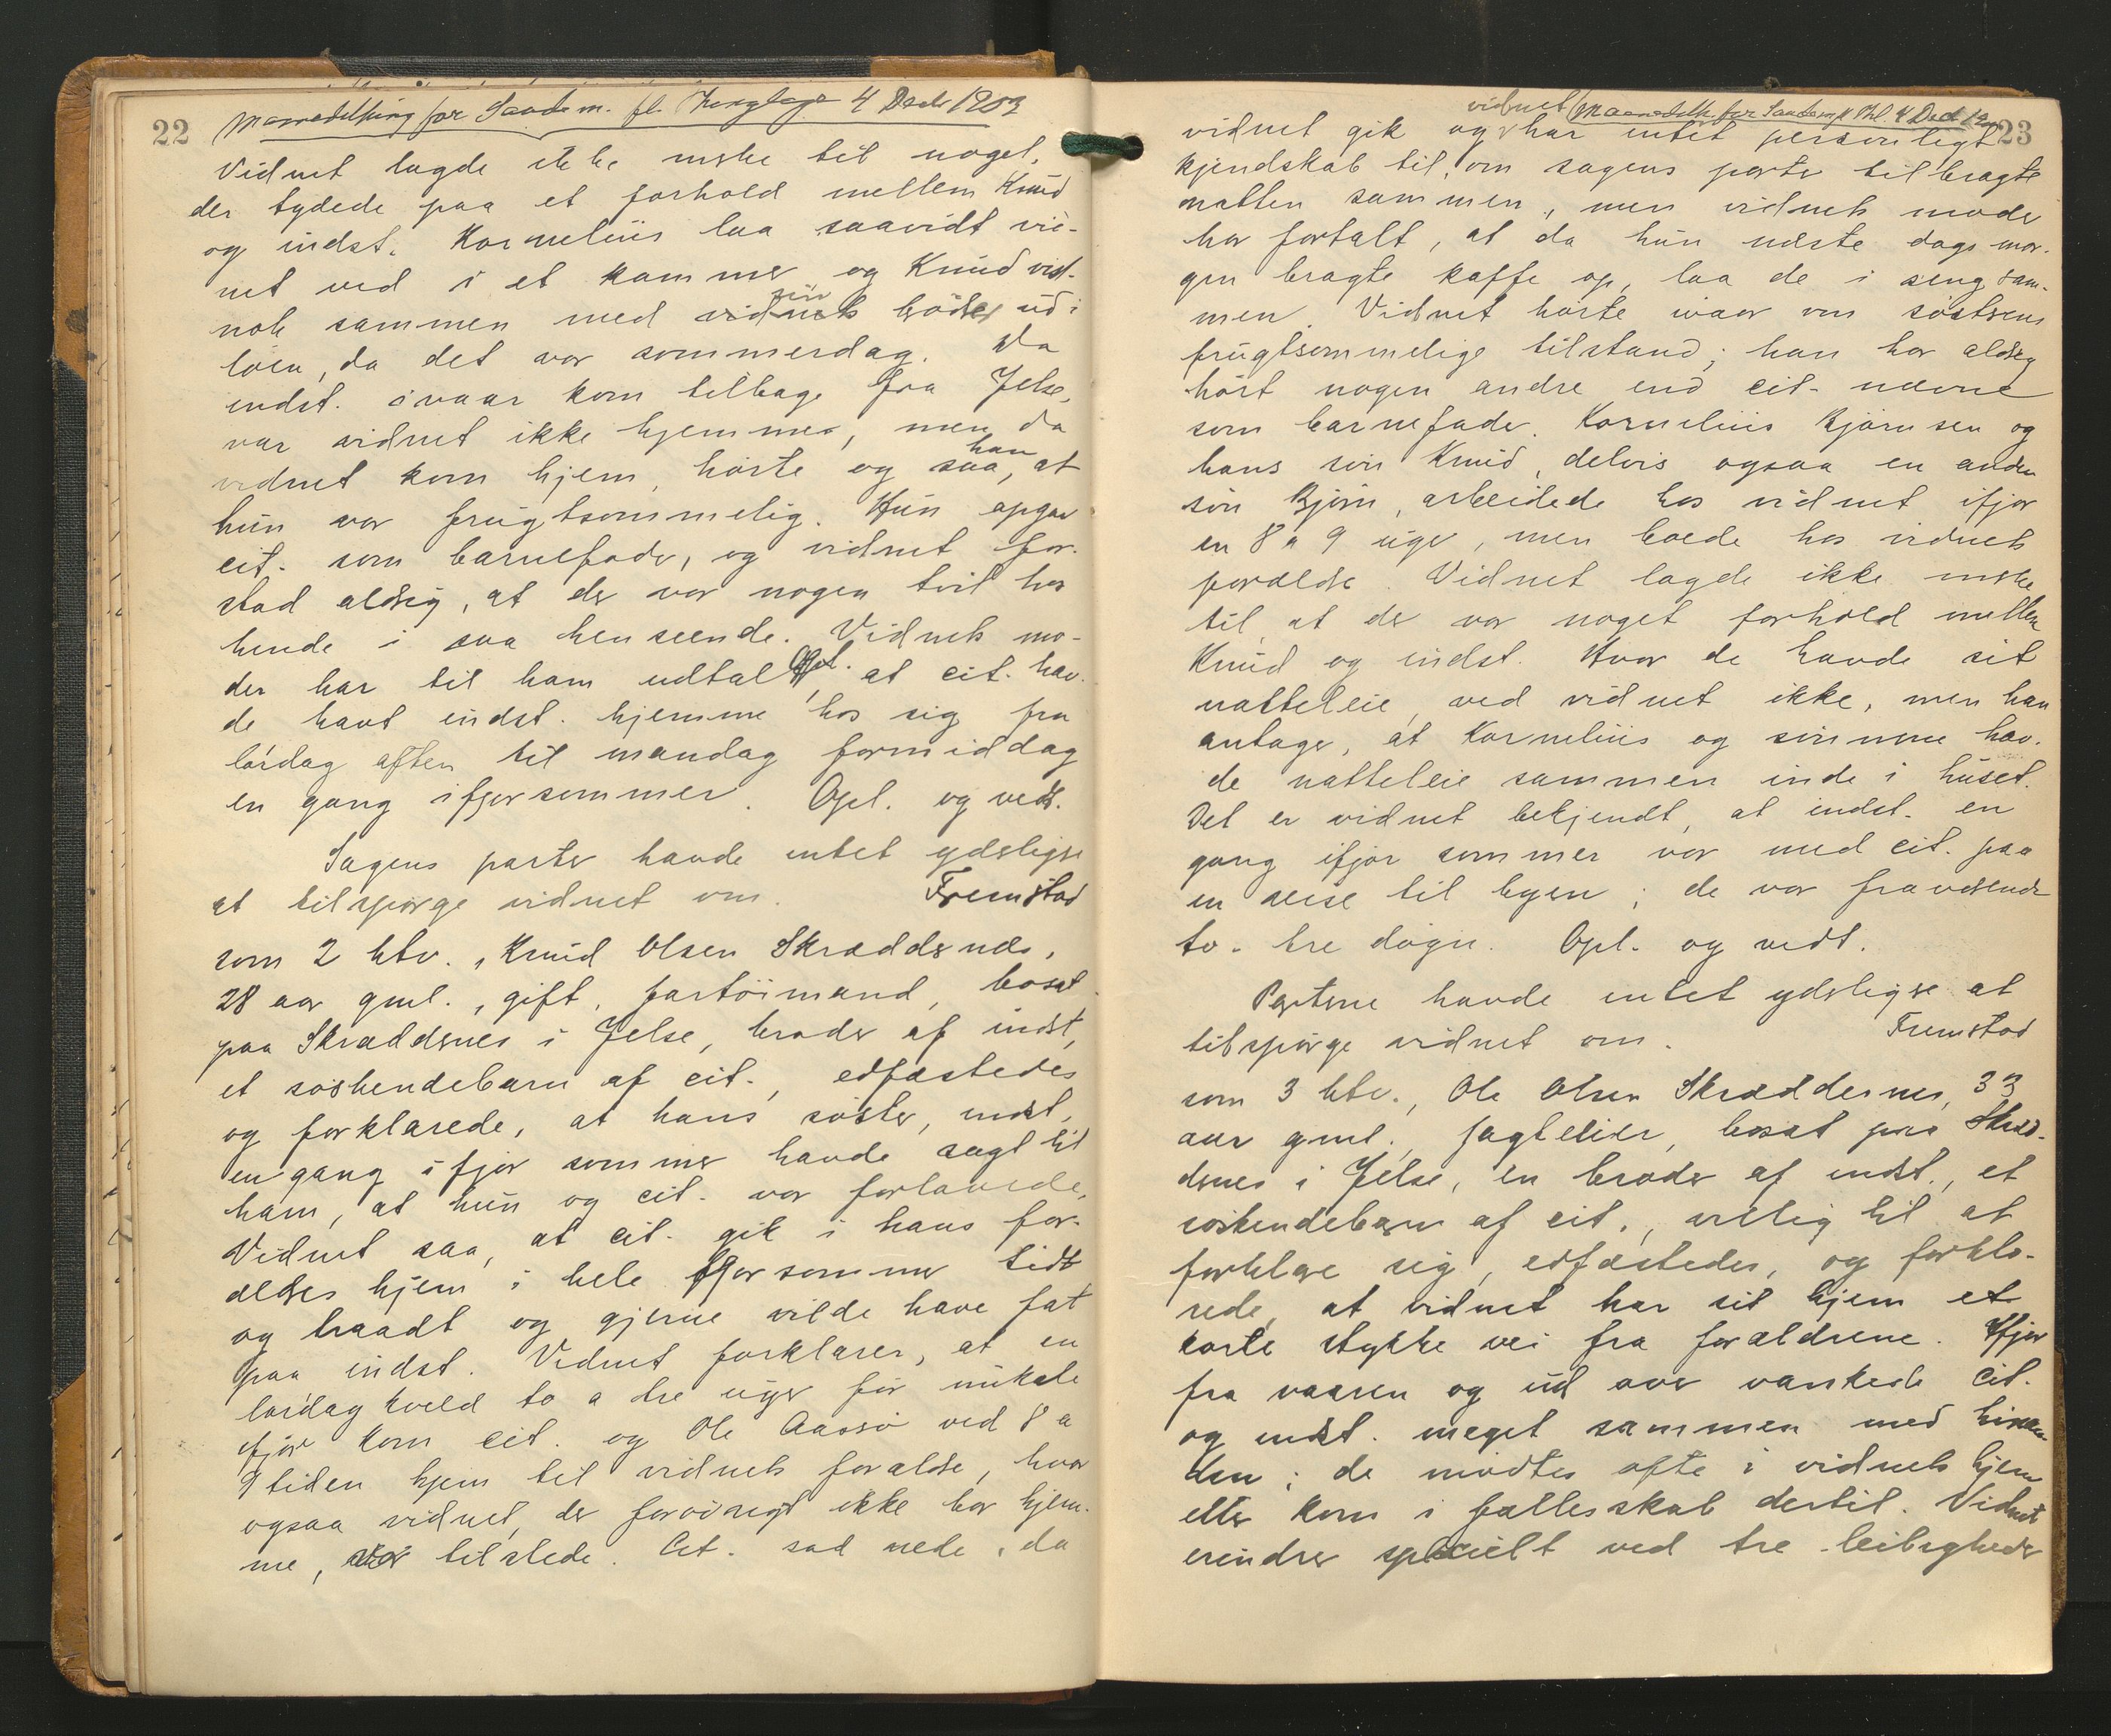 22
Maanedsthing for Sande m. fl. Thinglage 4 Decbr 1903
Vidnet lagde ikke mærke til noget,
der tydede paa et forhold mellem Knud
og indst. Kornelius laa saavidt vid-
net ved i et kammer og Knud vist-
nok sammen med vidnets sin broder ud i
löen, da det var sommerdag. Da
indst. ivaar kom tilbage fra Jelse,
var vidnet ikke hjemme, men da
vidnet kom hjem, hörte og saa han, at
hun var frugtsommelig. Hun opgav
cit. som barnefader, og vidnet for-
stod aldrig, at der var nogen tvil hos
hende i saa henseende. Vidnets mo-
der har til ham udtalt, at cit. hav-
de havt indst. hjemme hos sig fra
lördag aften til mandag formiddag
en gang ifjorsommer. Opl. og vedt.
Sagens parter havde intet yderligere
at tilspörge vidnet om. Fremstod
som 2 htv., Knud Olsen Skreddernes,
28 aar gml., gift, fartöimand, bosat
paa Skræddernes i Jelse, broder af indst,
et söskendebarn af cit., edfæstedes
og forklarede, at hans söster, indst,
en gang ifjor sommer havde sagt til
ham, at hun og cit. var forlovede.
Vidnet saa, at cit. gik i hans for-
ældres hjem i hele ifjor sommer tidt
og traadt og gjerne vilde have fat
paa indst. Vidnet forklarer, at en
lördag kveld to a tre uger för mikale
ifjor kom cit. og Ole Aasö ved 8 a
9 tiden hjem til vidnets forældre, hvor
ogsaa vidnet, der forövrigt ikke bor hjem-
me, var tilstede. Cit. sad nede, da
23
vidnet Maanedsth. for Sande m fl Thl. 4 Decb 1903
vidnet gik og har intet personligt
kjendskab til, om sagens parter tilbragte
natten sammen, men vidnets moder
har fortalt, at da hun næste dags mor-
gen bragte kaffe op, laa de i seng sam-
men. Vidnet hörte ivaar om söstrens
frugtsommelige tilstand; han har aldrig
hört nogen andre end cit. nævne
som barnefader. Kornelius Bjørnsen og
hans sön Knud, delvis ogsaa en anden
sön Björn, arbeidede hos vidnet ifjor
en 8 a 9 uger, men boede hos vidnets
forældre. Vidnet lagde ikke mærke
til, at der var noget forhold mellem
Knud og indst. Hvor de havde sit
natteleie, ved vidnet ikke, men han
antager, at Kornelius og sönnerne hav-
de natteleie sammen inde i huset.
Det er vidnet bekjendt, at indst. en
gang ifjor sommer var med cit. paa
en reise til byen; de var fraværende
to-tre dögn. Opl. og vedt.
Parterne havde intet yderligere at
tilspörge vidnet om. Fremstod
som 3 htv., Ole Olsen Skræddernes, 33
aar gml., jagteier, bosat paa Skræd-
dernes i Jelse, en broder af indst., et
söskendebarn af cit., villig til at
forklare sig, edfæstedes, og forkla-
rede, at vidnet har sit hjem et
korte stykke vei fra forældrene. Ifjor
fra vaaren og ud over vankede cit.
og indst. meget sammen med hinan-
den; de mödtes ofte i vidnets hjem
eller kom i fællesskab dertil. Vidnet
erindrer specielt ved tre leiligheder